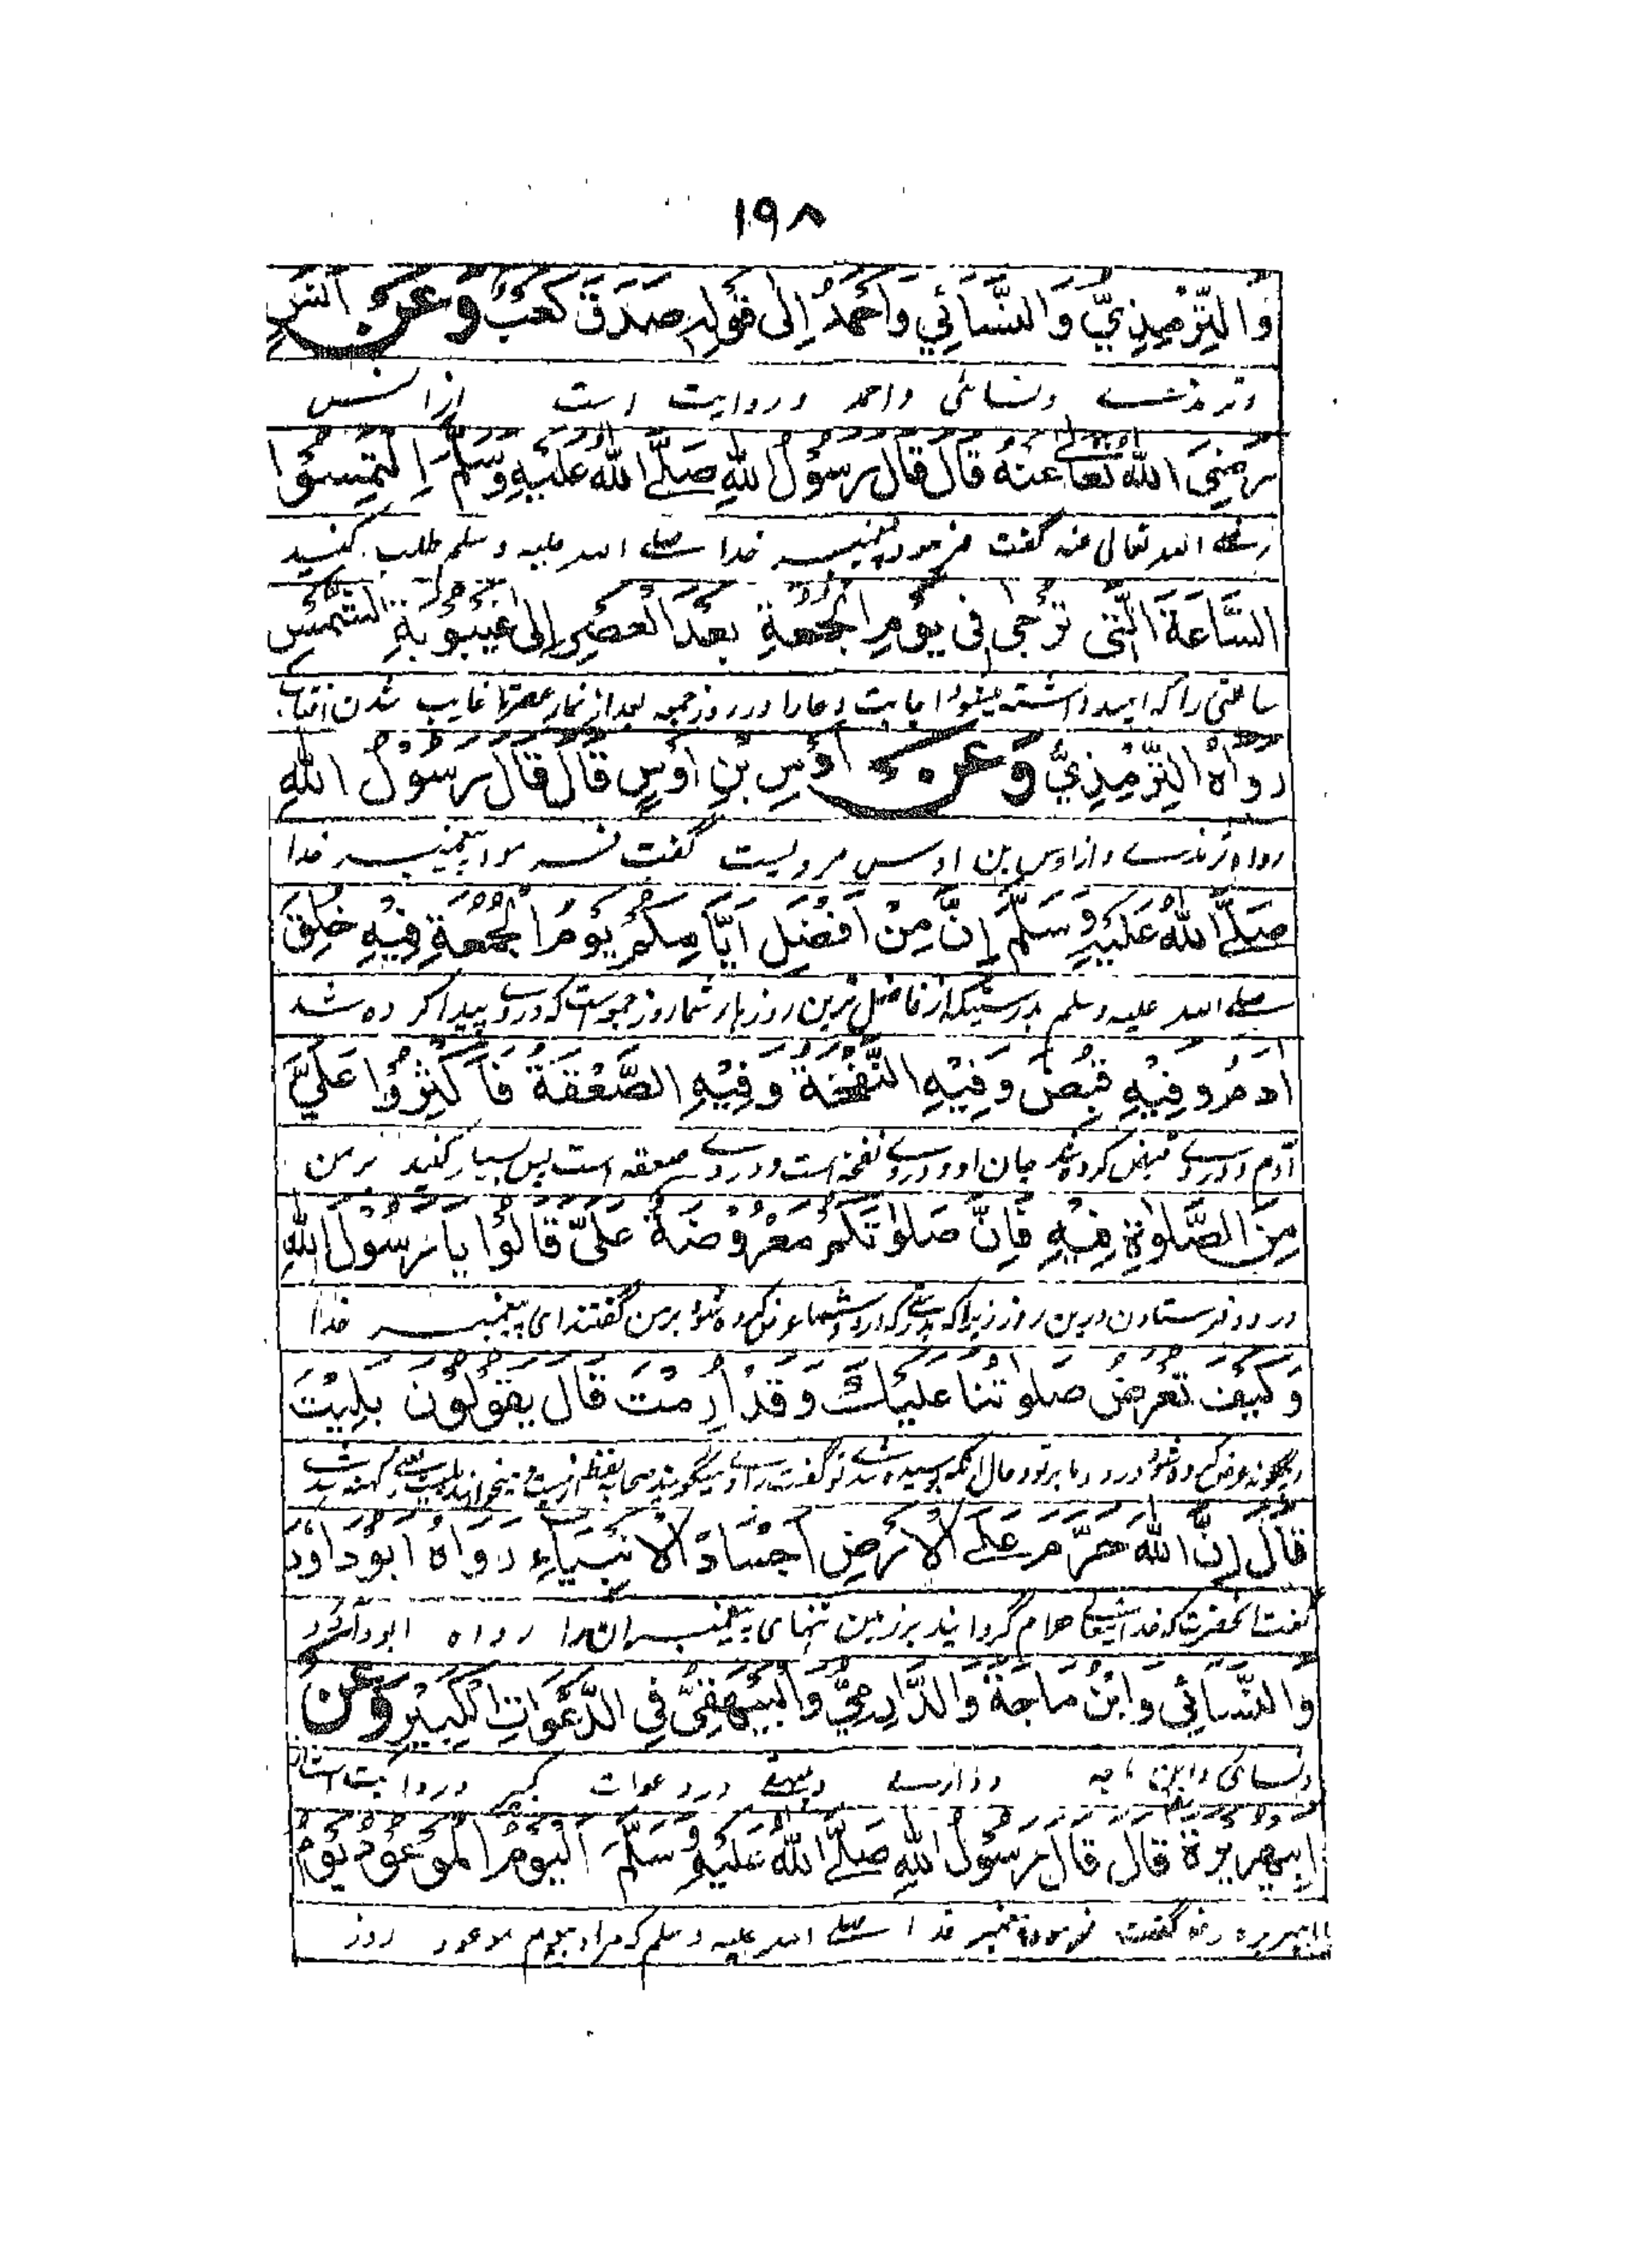 ١٩٨
وَالتِّرْمِذِيُّ وَالنَّسَائِي وَاَحْمَدُ اِلٰى قَوْلِهِ صَدَقَ كَعْبٌ وَعَنْ اَنَسٍ
وترمذی ونسائی واحمد وروایت است ازانس
رَضِيَ اللهُ تَعَالٰى عَنْهُ قَالَ قَالَ رَسُوْلُ اللهِ صَلَّى اللهُ عَلَيْهِ وَسَلَّمَ اِلْتَمِسُوْا
رضی الله تعالی عنه گفت فرمود پیغمبر خدا صلی الله علیه وسلم طلب کنید
السَّاعَةَ الَّتِي تُرْجٰى فِي يَوْمِ الْجُمُعَةِ بَعْدَ الْعَصْرِ اِلٰى غَيْبُوْبَةِ الشَّمْسِ
ساعتی را که امید داشته میشود اجابت دعا را در روز جمعه بعد از نماز عصر تا غایب شدن افتاب
رَوَاهُ التِّرْمِذِيُّ وَعَنْ اَوْسِ بْنِ اَوْسٍ قَالَ قَالَ رَسُوْلُ اللهِ
رواه ترمذی و از اوس بن اوس مرویست گفت فرمود پیغمبر خدا
صَلَّى اللهُ عَلَيْهِ وَسَلَّمَ اِنَّ مِنْ اَفْضَلِ اَيَّامِكُمْ يَوْمَ الْجُمُعَةِ فِيْهِ خُلِقَ
صلی الله علیه وسلم بدرستیکه از فاضل ترین روزهار شما روز جمعه است که دروی پیدا کرده شد
اٰدَمُ وَفِيْهِ قُبِضَ وَفِيْهِ النَّفْخَةُ وَفِيْهِ الصَّعْقَةُ فَاَكْثِرُوْا عَلَيَّ
آدم و دروی قبض کرده شد جان او و دروی نفخه است و دروی صعقه است پس بسیار کنید بر من
مِنَ الصَّلٰوةِ فِيْهِ فَاِنَّ صَلٰوتَكُمْ مَعْرُوْضَةٌ عَلَيَّ قَالُوْا يَا رَسُوْلَ اللهِ
درود فرستادن درین روز زیرا که درود شما عرض کرده شود بر من گفتند ای پیغمبر خدا
وَكَيْفَ تُعْرَضُ صَلٰوتُنَا عَلَيْكَ وَقَدْ اَرِمْتَ قَالَ يَقُوْلُوْنَ بَلِيْتَ
وچگونه عرض کرده شود درود ما بر تو و حال آنکه پوسیده شدی تو گفت راوی میگویند صحابه بلفظ ارمت
قَالَ اِنَّ اللهَ حَرَّمَ عَلَى الْاَرْضِ اَجْسَادَ الْاَنْبِيَاءِ رَوَاهُ اَبُوْ دَاوٗدَ
گفت آنحضرت که خدا تعالی حرام گردانید بر زمین تنهای پیغمبران را رواه ابوداؤد
وَالنَّسَائِي وَابْنُ مَاجَةَ وَالدَّارِمِيُّ وَالْبَيْهَقِيُّ فِي الدَّعَوَاتِ الْكَبِيْرِ وَعَنْ
ونسائی وابن ماجه ودارمی وبیهقی در دعوات کبیر وروایت است از
اَبِيْ هُرَيْرَةَ قَالَ قَالَ رَسُوْلُ اللهِ صَلَّى اللهُ عَلَيْهِ وَسَلَّمَ اَلْيَوْمُ الْمَوْعُوْدُ يَوْمُ
ابی هریره رض گفت فرمود پیغمبر خدا صلی الله علیه وسلم که مراد بیوم موعود روز